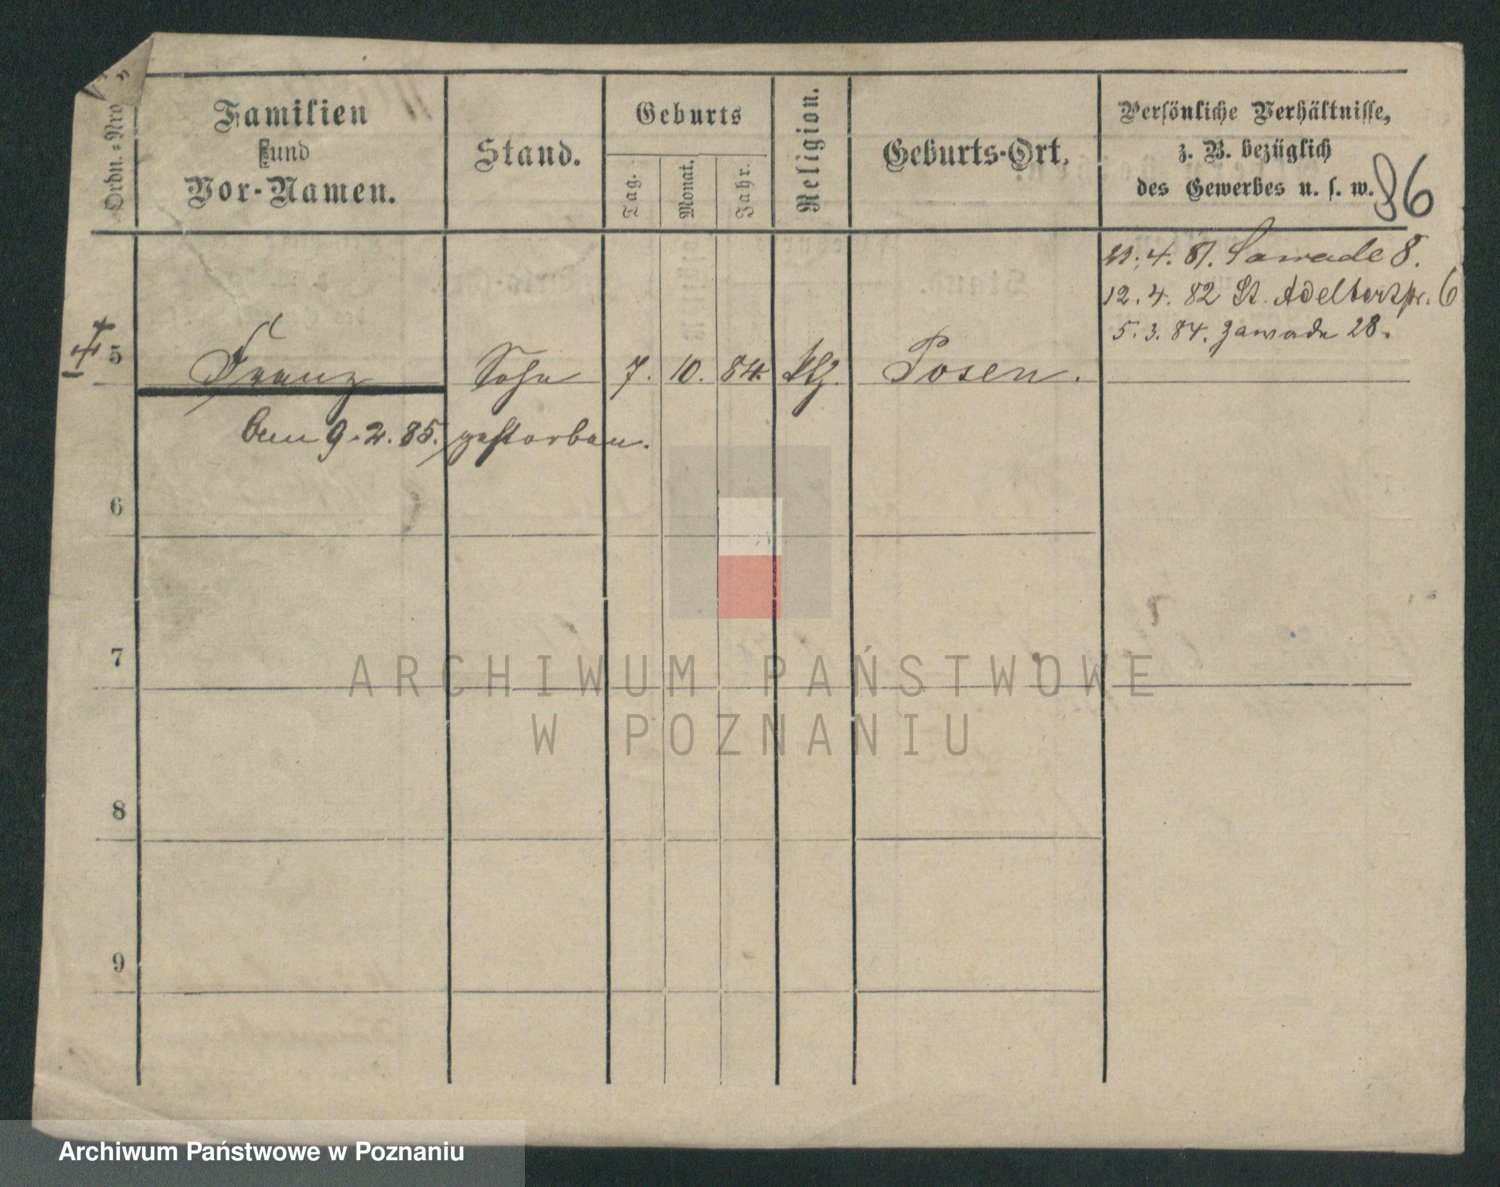 Ordn.-Nro
Familien
und
Vor-Namen.
Stand.
Geburts
Tag.
Monat.
Jahr.
Religion.
Geburts-Ort.
Persönliche Verhältnisse,
z. B. bezüglich
des Gewerbes u. s. w.
86
4. 81. Zawade 8.
12. 4. 82 St. Adelbertstr. 6
5. 3. 84. Zawade 28.
5 Franz Sohn 7. 10. 84. kth. Posen.
9. 2. 85. gestorben.
6
7
8
9
ARCHIWUM PAŃSTWOWE
W POZNANIU
Archiwum Państwowe w Poznaniu